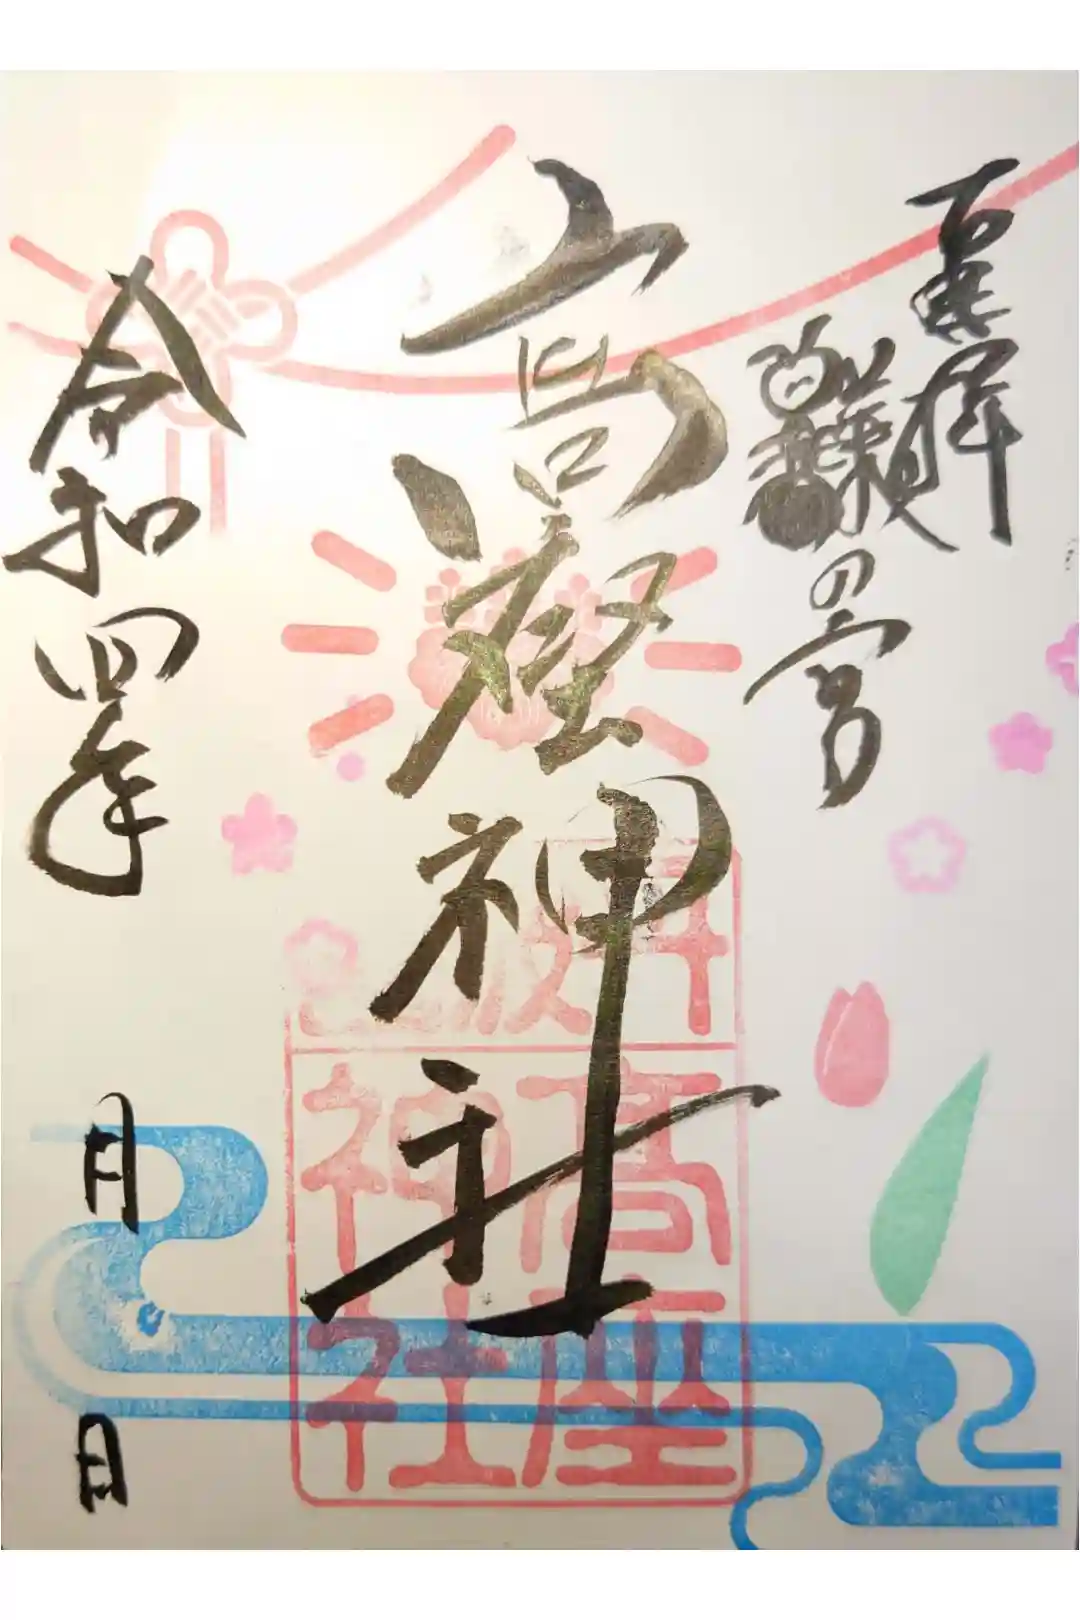 奉拝
の宮
高座神社
丹波
高座
神社
令和四年 月 日